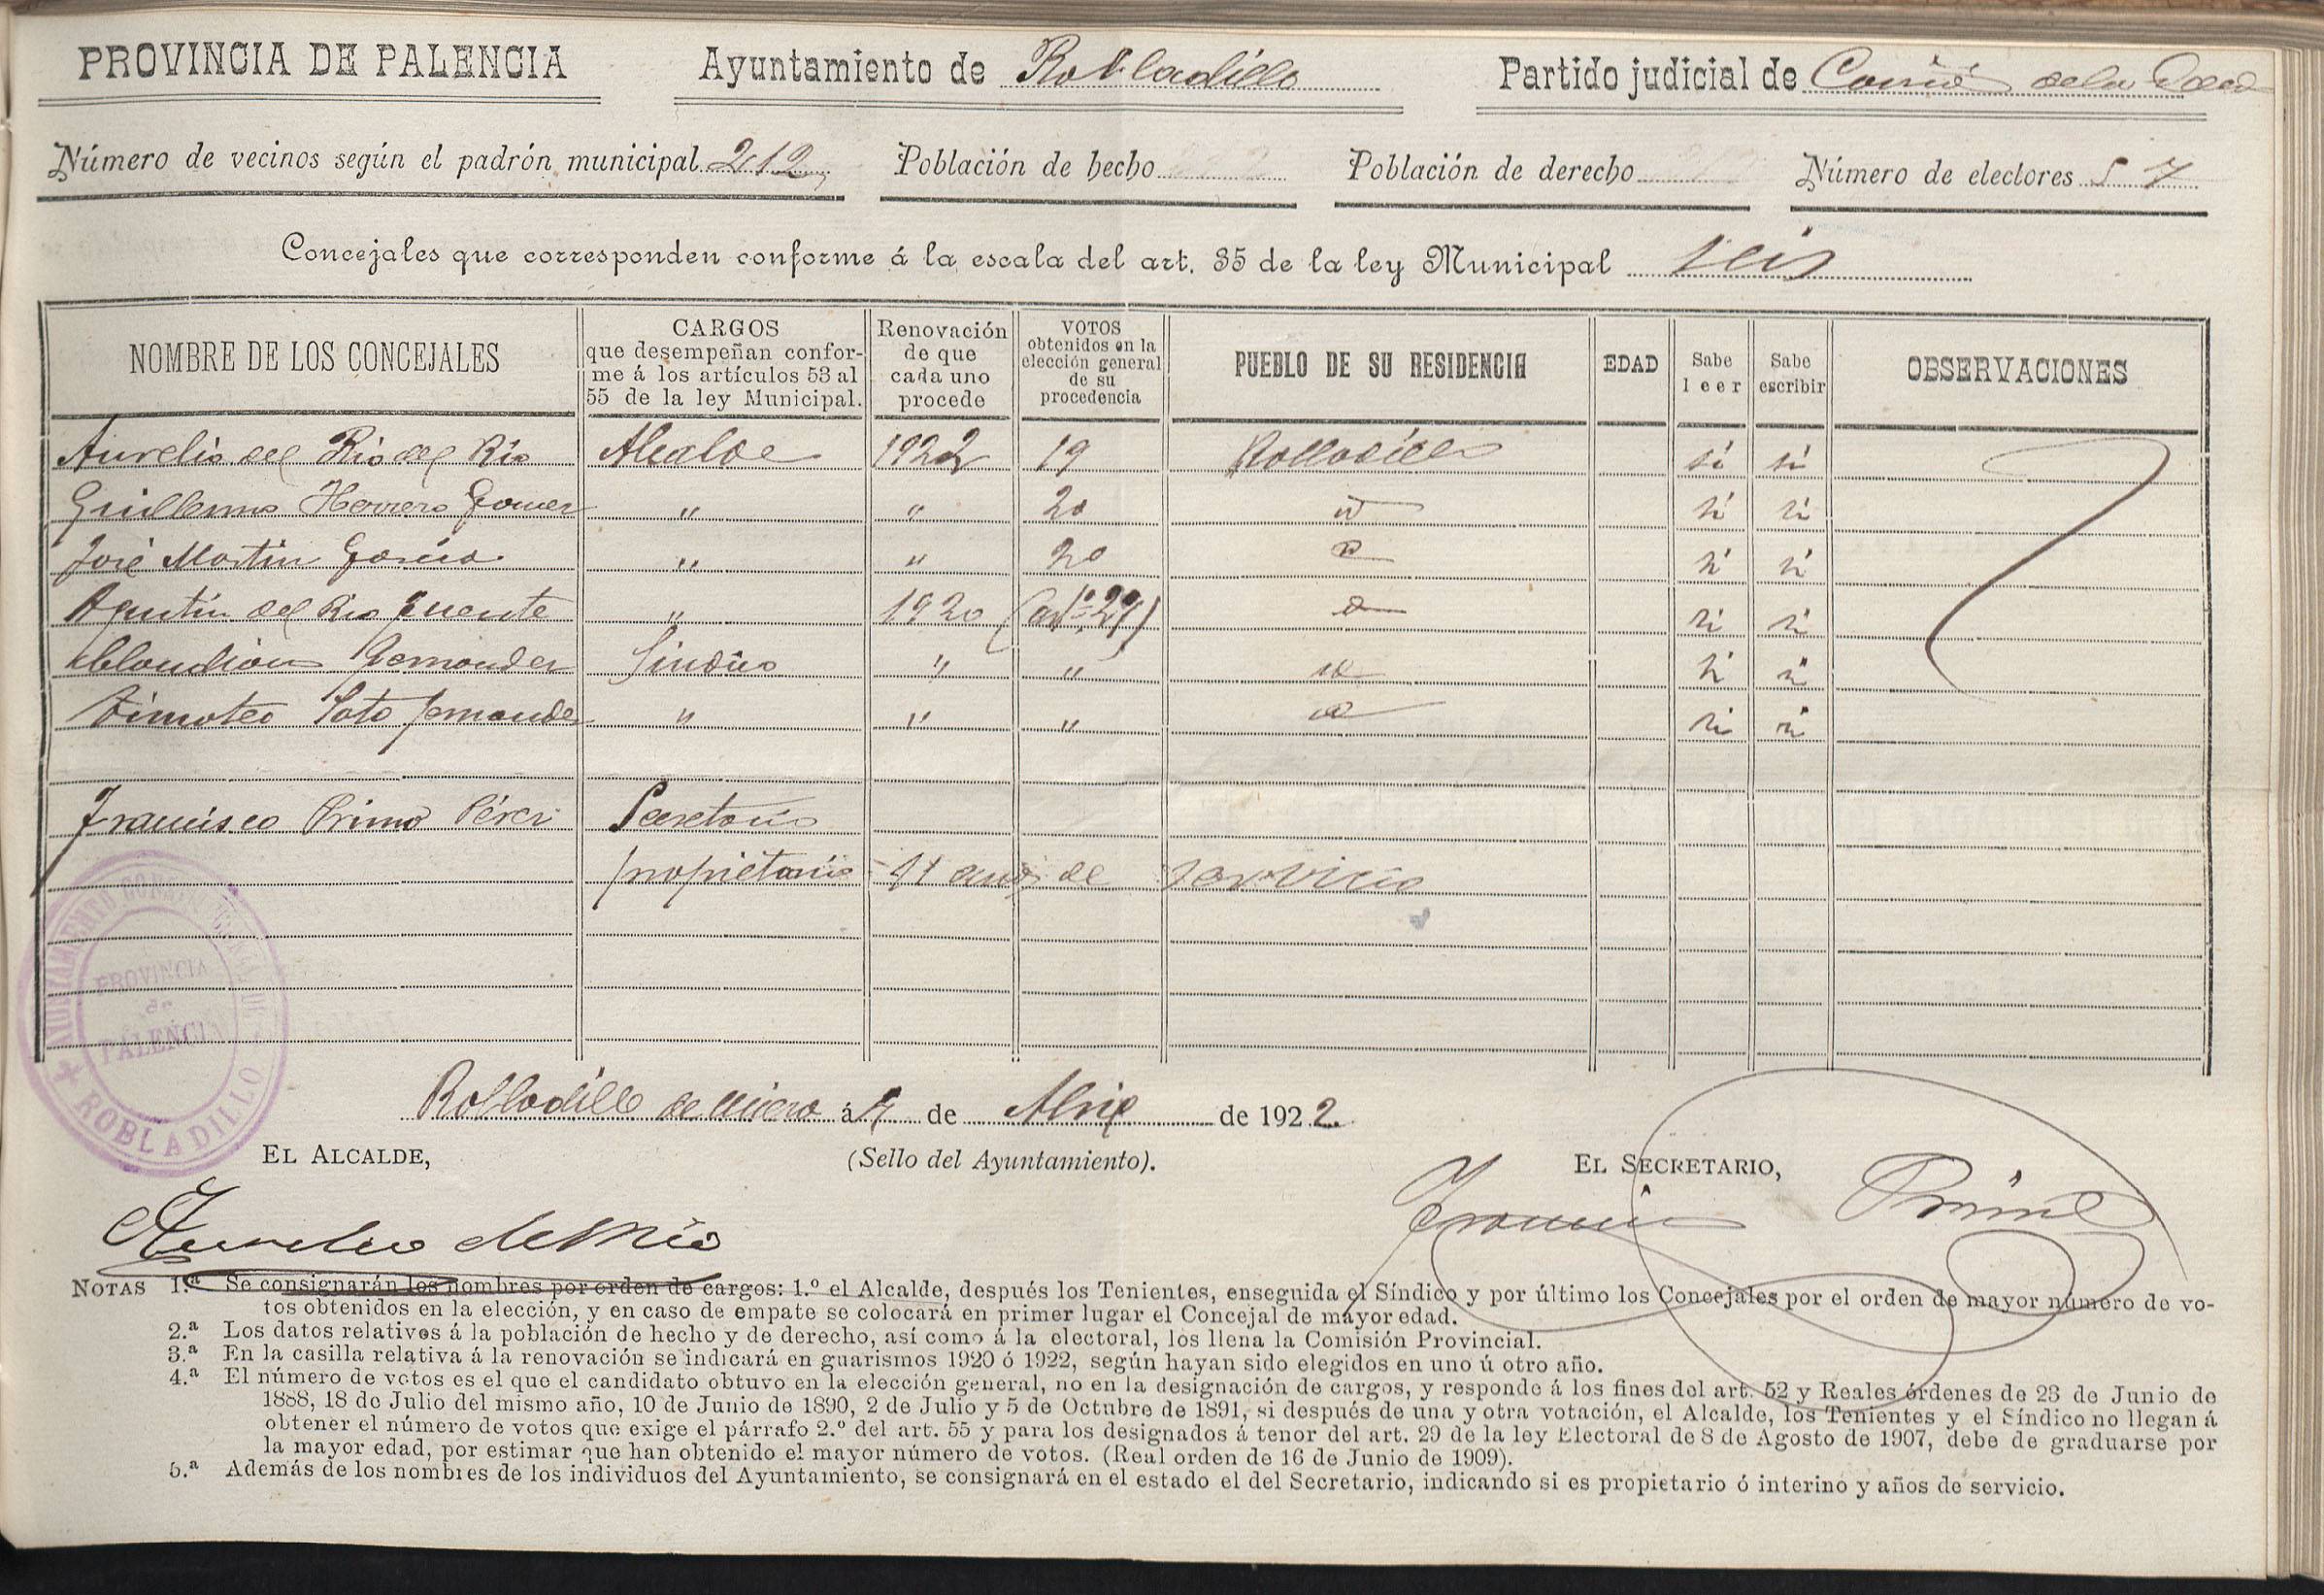 PROVINCIA DE PALENCIA Ayuntamiento de Robladillo Partido judicial de Carrión de los
Número de vecinos según el padrón municipal 212, Población de hecho Población de derecho Número de electores 57
Concejales que corresponden conforme á la escala del art. 35 de la ley Municipal seis
NOMBRE DE LOS CONCEJALES
CARGOS
que desempeñan confor-
me á los artículos 53 al
55 de la ley Municipal.
Renovación
de que
cada uno
procede
VOTOS
obtenidos en la
elección general
de su
procedencia
PUEBLO DE SU RESIDENCIA
EDAD
Sabe
leer
Sabe
escribir
OBSERVACIONES
Aurelio del Rio del Rio Alcalde 1922 19 Robladillo si si
Guillermo Herrero Gomez " " 20 id si si
José Martin Garcia " " 20 id si si
Agustin del Rio Puente " 1920 (artº 29) id si si
Claudiano Fernandez Sindico " " id si si
Timoteo Soto Fernandez " " " id si si
Francisco Primo Pérez Secretario
propietario 41 años de servicio
AYUNTAMIENTO CONSTITUCIONAL DE
PROVINCIA
de
PALENCIA
ROBLADILLO
Robladillo de Ucieza á 7 de Abril de 1922.
EL ALCALDE, (Sello del Ayuntamiento). EL SECRETARIO,
Aurelio del Rio Francisco Primo
NOTAS 1.ª Se consignarán los nombres por orden de cargos: 1.º el Alcalde, después los Tenientes, enseguida el Síndico y por último los Concejales por el orden de mayor número de vo-
tos obtenidos en la elección, y en caso de empate se colocará en primer lugar el Concejal de mayor edad.
2.ª Los datos relativos á la población de hecho y de derecho, así como á la electoral, los llena la Comisión Provincial.
3.ª En la casilla relativa á la renovación se indicará en guarismos 1920 ó 1922, según hayan sido elegidos en uno ú otro año.
4.ª El número de votos es el que el candidato obtuvo en la elección general, no en la designación de cargos, y responde á los fines del art. 52 y Reales órdenes de 23 de Junio de
1888, 18 de Julio del mismo año, 10 de Junio de 1890, 2 de Julio y 5 de Octubre de 1891, si después de una y otra votación, el Alcalde, los Tenientes y el Síndico no llegan á
obtener el número de votos que exige el párrafo 2.º del art. 55 y para los designados á tenor del art. 29 de la ley Electoral de 8 de Agosto de 1907, debe de graduarse por
la mayor edad, por estimar que han obtenido el mayor número de votos. (Real orden de 16 de Junio de 1909).
5.ª Además de los nombres de los individuos del Ayuntamiento, se consignará en el estado el del Secretario, indicando si es propietario ó interino y años de servicio.